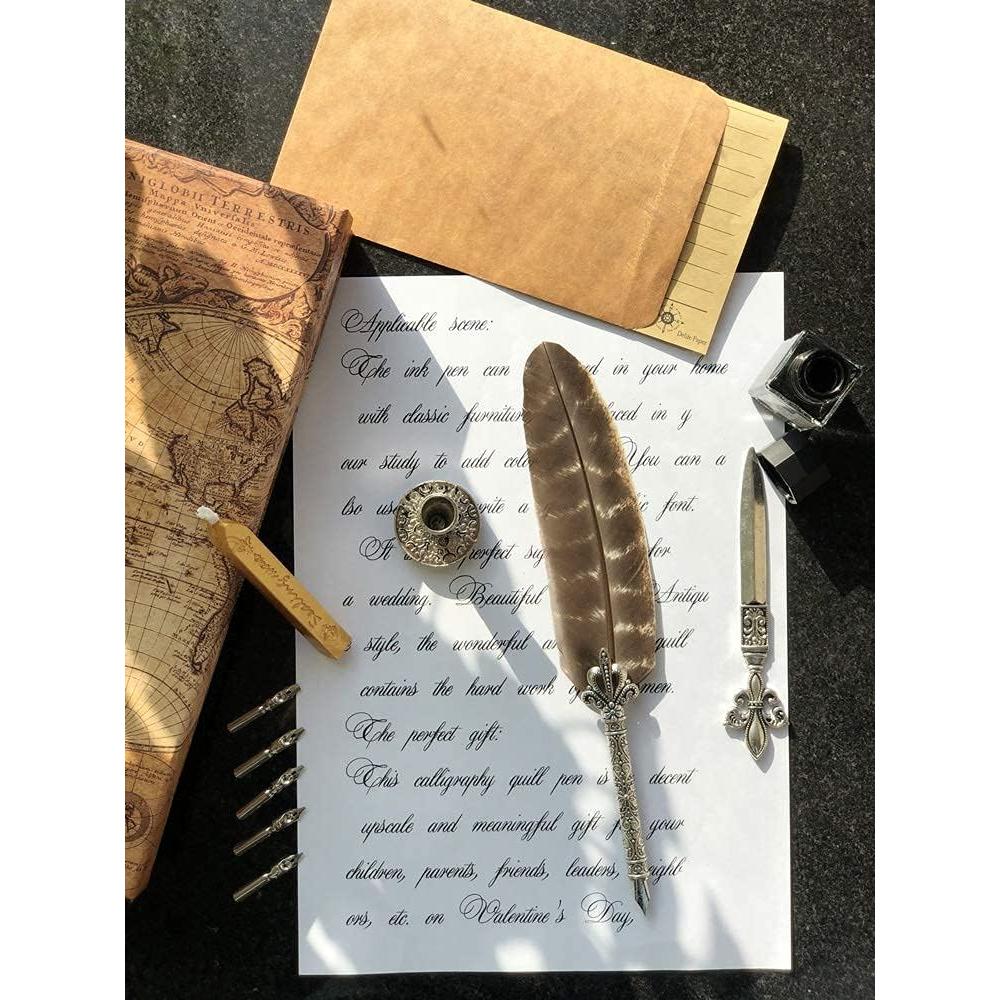 NIGLOBII TERRESTRIS
Mappa Vniversalis
Delite Paper
Applicable scene:
The ink pen can d in your home
with classic furnitur laced in y
our study to add colo You can a
lso use write a ic font.
It perfect sig for
a wedding. Beautiful Antiqu
e style, the wonderful an quill
contains the hard work of men.
The perfect gift:
This calligraphy quill pen is decent
upscale and meaningful gift for your
children, parents, friends, leaders, neighb
ors, etc. on Valentine's Day,
Sealing wax